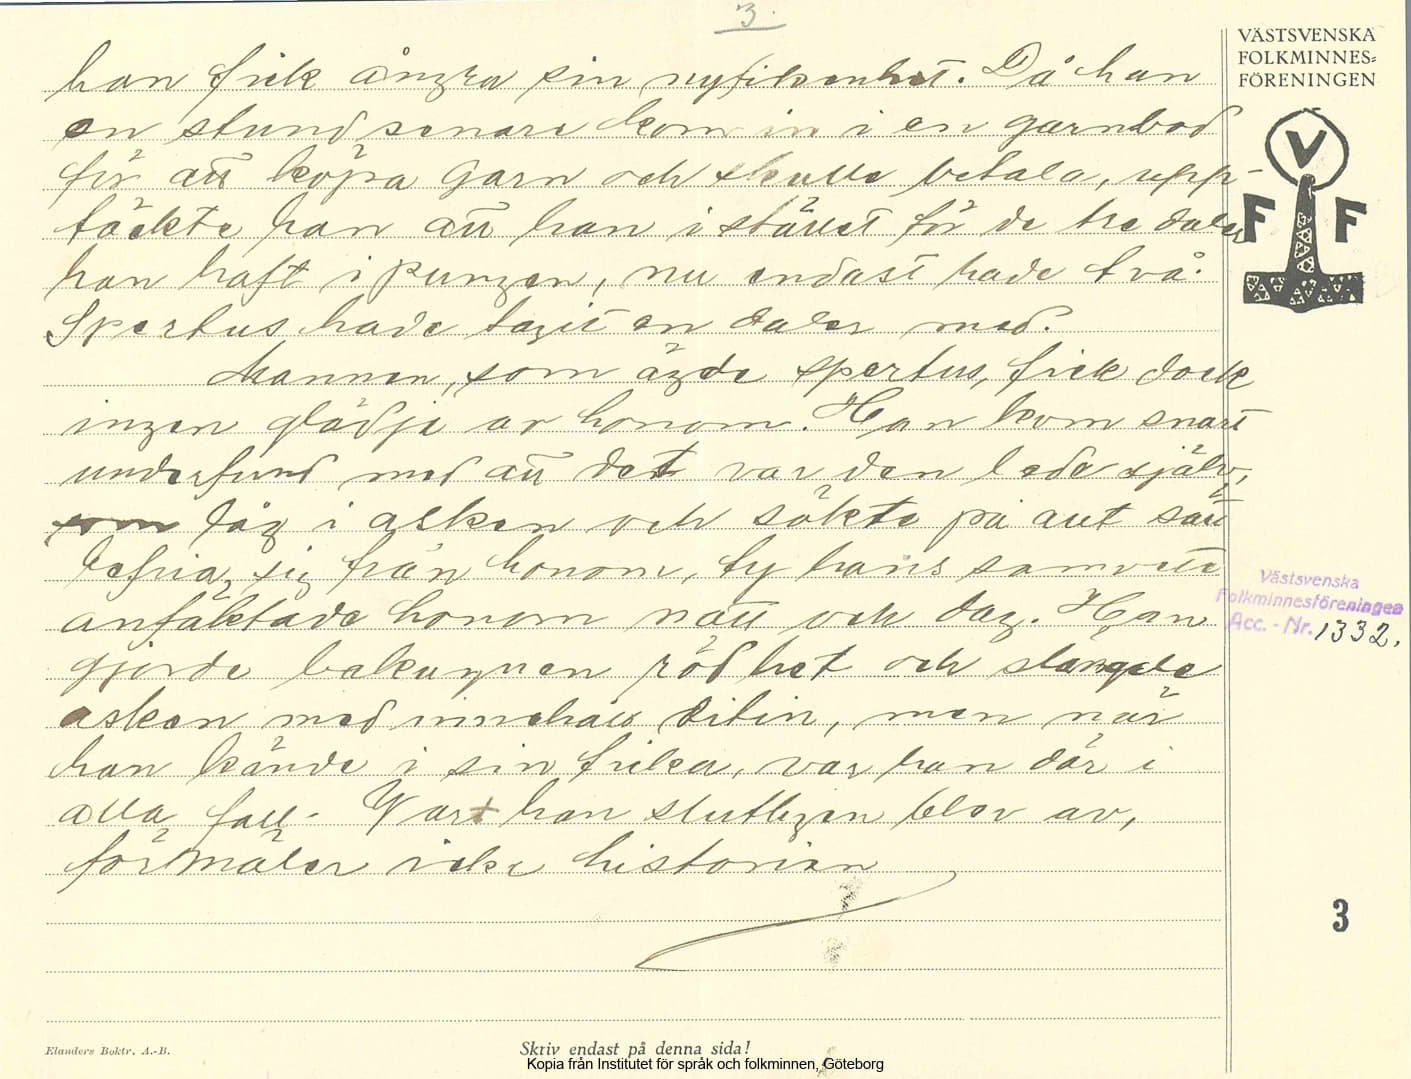 3.
VÄSTSVENSKA
FOLKMINNES=
FÖRENINGEN
V
F F
han fick ångra sin nyfikenhet. Då han
en stund senare kom in i en garnbod
för att köpa garn och skulle betala, upp-
täckte han att han i stället för de tre daler
han haft i pungen, nu endast hade två.
Spertus hade tagit en daler med.
Mannen, som ägde spertus, fick dock
ingen glädje av honom. Han kom snart
underfund med att det var den lede själv,
som låg i asken och sökte på allt sätt
befria sig från honom, ty hans samvete
anfäktade honom natt och dag. Han
gjorde bakugnen rödhet och slängde
asken med innehåll ditin, men när
han kände i sin ficka, var han där i
alla fall. Vart han slutligen blev av,
förmäler icke historien
Västsvenska
Folkminnesföreningen
Acc. - Nr. 1332.
3
Elanders Boktr. A.-B.
Skriv endast på denna sida!
Kopia från Institutet för språk och folkminnen, Göteborg